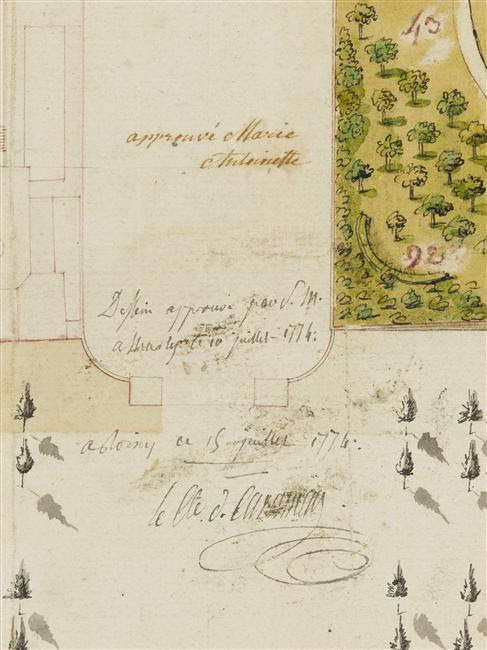 43
approuvé Marie
Antoinette
92
Dessein approuvé par S. M.
a Marly le 10 juillet 1774.
a Roissy ce 15 juillet 1774.
le Cte. de Caraman